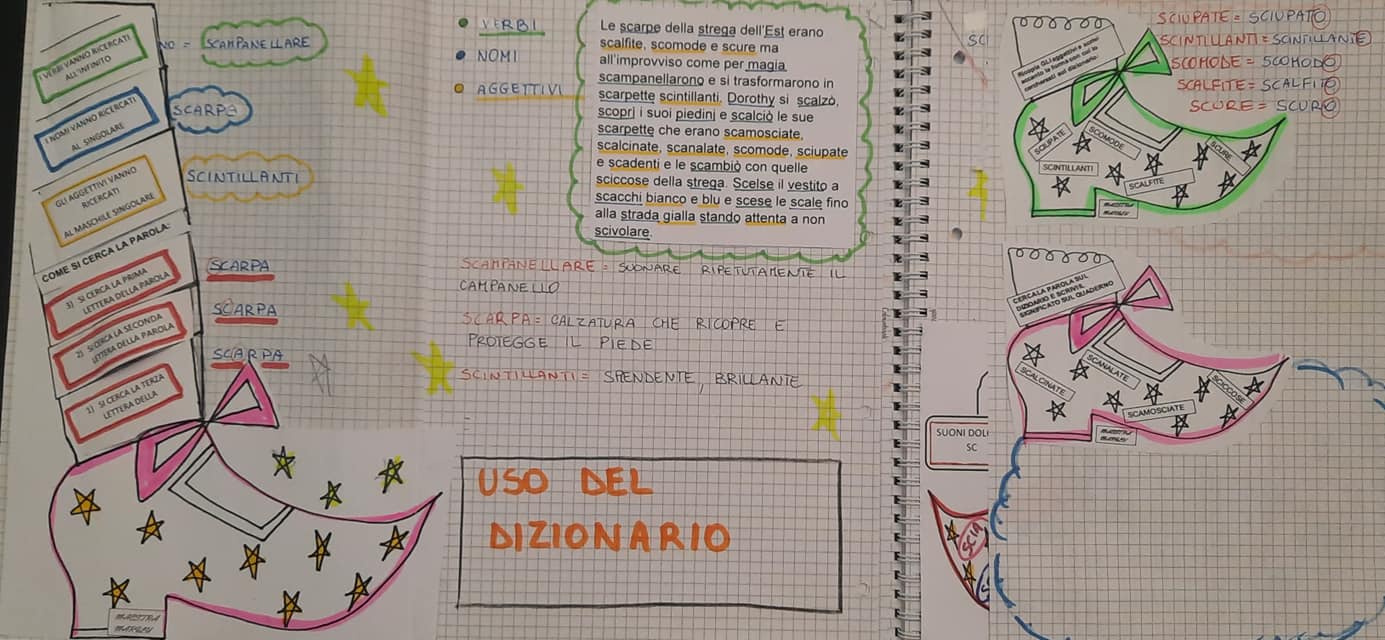 I VERBI VANNO RICERCATI
ALL'INFINITO
NO = SCAMPANELLARE
I NOMI VANNO RICERCATI
AL SINGOLARE
SCARPA
GLI AGGETTIVI VANNO
RICERCATI
AL MASCHILE SINGOLARE
SCINTILLANTI
COME SI CERCA LA PAROLA:
3) SI CERCA LA PRIMA
LETTERA DELLA PAROLA
SCARPA
2) SI CERCA LA SECONDA
LETTERA DELLA PAROLA
SCARPA
1) SI CERCA LA TERZA
LETTERA DELLA
SCARPA
MAESTRA
MARGEU
VERBI
NOMI
AGGETTIVI
Le scarpe della strega dell'Est erano
scalfite, scomode e scure ma
all'improvviso come per magia
scampanellarono e si trasformarono in
scarpette scintillanti. Dorothy si scalzò,
scoprì i suoi piedini e scalciò le sue
scarpette che erano scamosciate,
scalcinate, scanalate, scomode, sciupate
e scadenti e le scambiò con quelle
sciccose della strega. Scelse il vestito a
scacchi bianco e blu e scese le scale fino
alla strada gialla stando attenta a non
scivolare.
SCAMPANELLARE = SUONARE RIPETUTAMENTE IL
CAMPANELLO
SCARPA = CALZATURA CHE RICOPRE E
PROTEGGE IL PIEDE
SCINTILLANTI = SPENDENTE, BRILLANTE
USO DEL
DIZIONARIO
SUONI DOL
SC
SCIA
SCIUPATE = SCIUPATO
SCINTILLANTI = SCINTILLANTE
SCOMODE = SCOMODO
SCALFITE = SCALFITO
SCURE = SCURO
SCIUPATE
SCOMODE
SCURE
SCINTILLANTI
SCALFITE
MAESTRA
MARGEU
CERCA LA PAROLA SUL
DIZIONARIO E SCRIVI IL
SIGNIFICATO SUL QUADERNO
SCALCINATE
SCANALATE
SCICCOSE
SCAMOSCIATE
MAESTRA
MARGEU